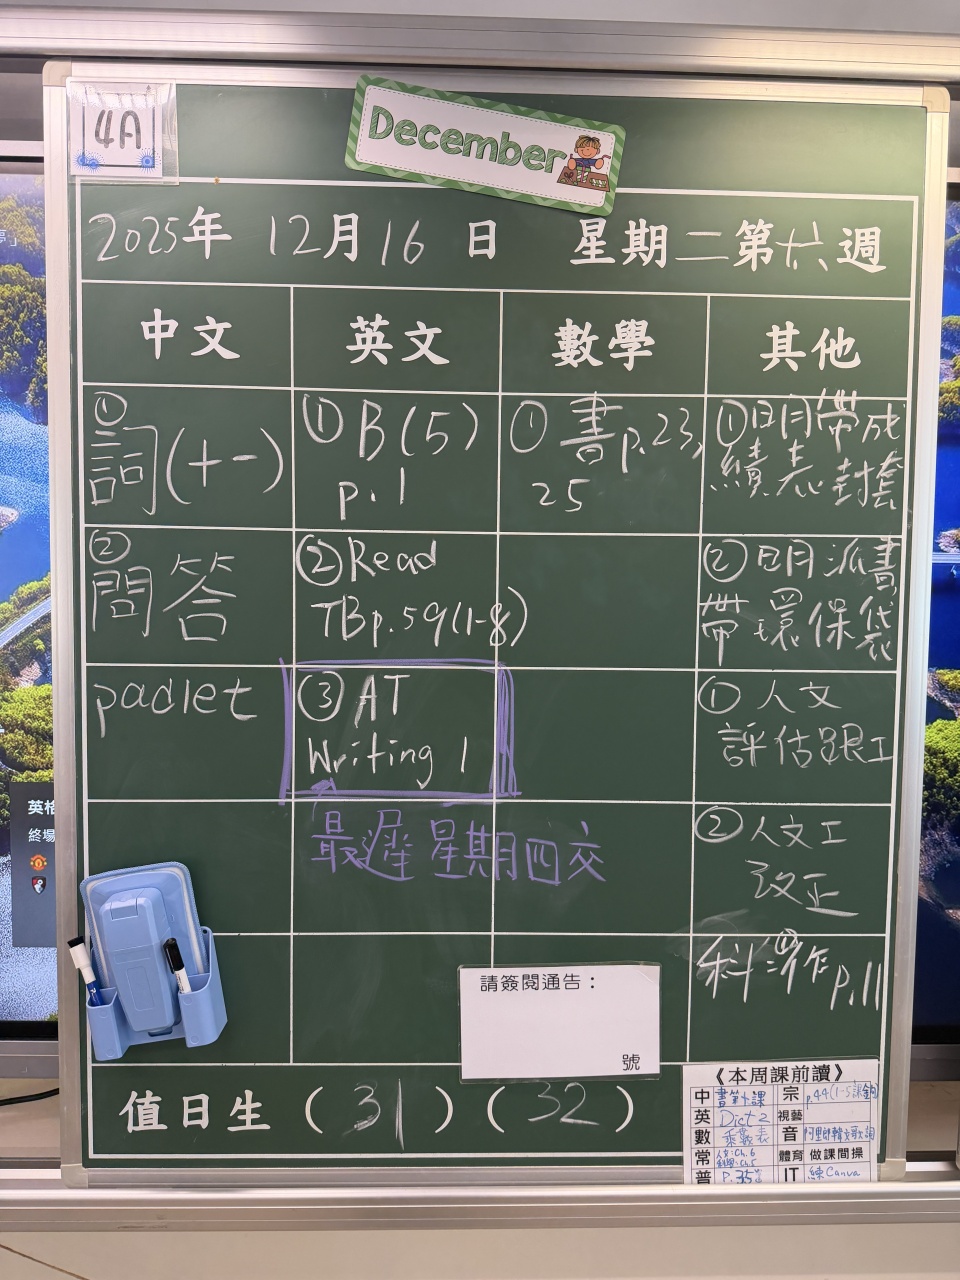 4A
December
2025年 12月16日 星期二第十六週
中文 英文 數學 其他
①
詞(十一)
①B(5)
p.1
①書p.23,
25
①明帶成
績表封套
②
問答
②Read
TBp.59(1-8)
②明派書
帶環保袋
padlet
③AT
Writing 1
①人文
評估跟工
最遲星期四交
②人文工
改正
科準作p.11
請簽閱通告：
號
值日生(31)(32)
《本周課前讀》
中 書第十課 宗 p.44(1-5課鈎)
英 Dict 2 視藝
數 乘義表 音
常 人文:Ch.6
科學:Ch.5
體育 做課間操
普 p.35 IT 練Canva
英格
終場